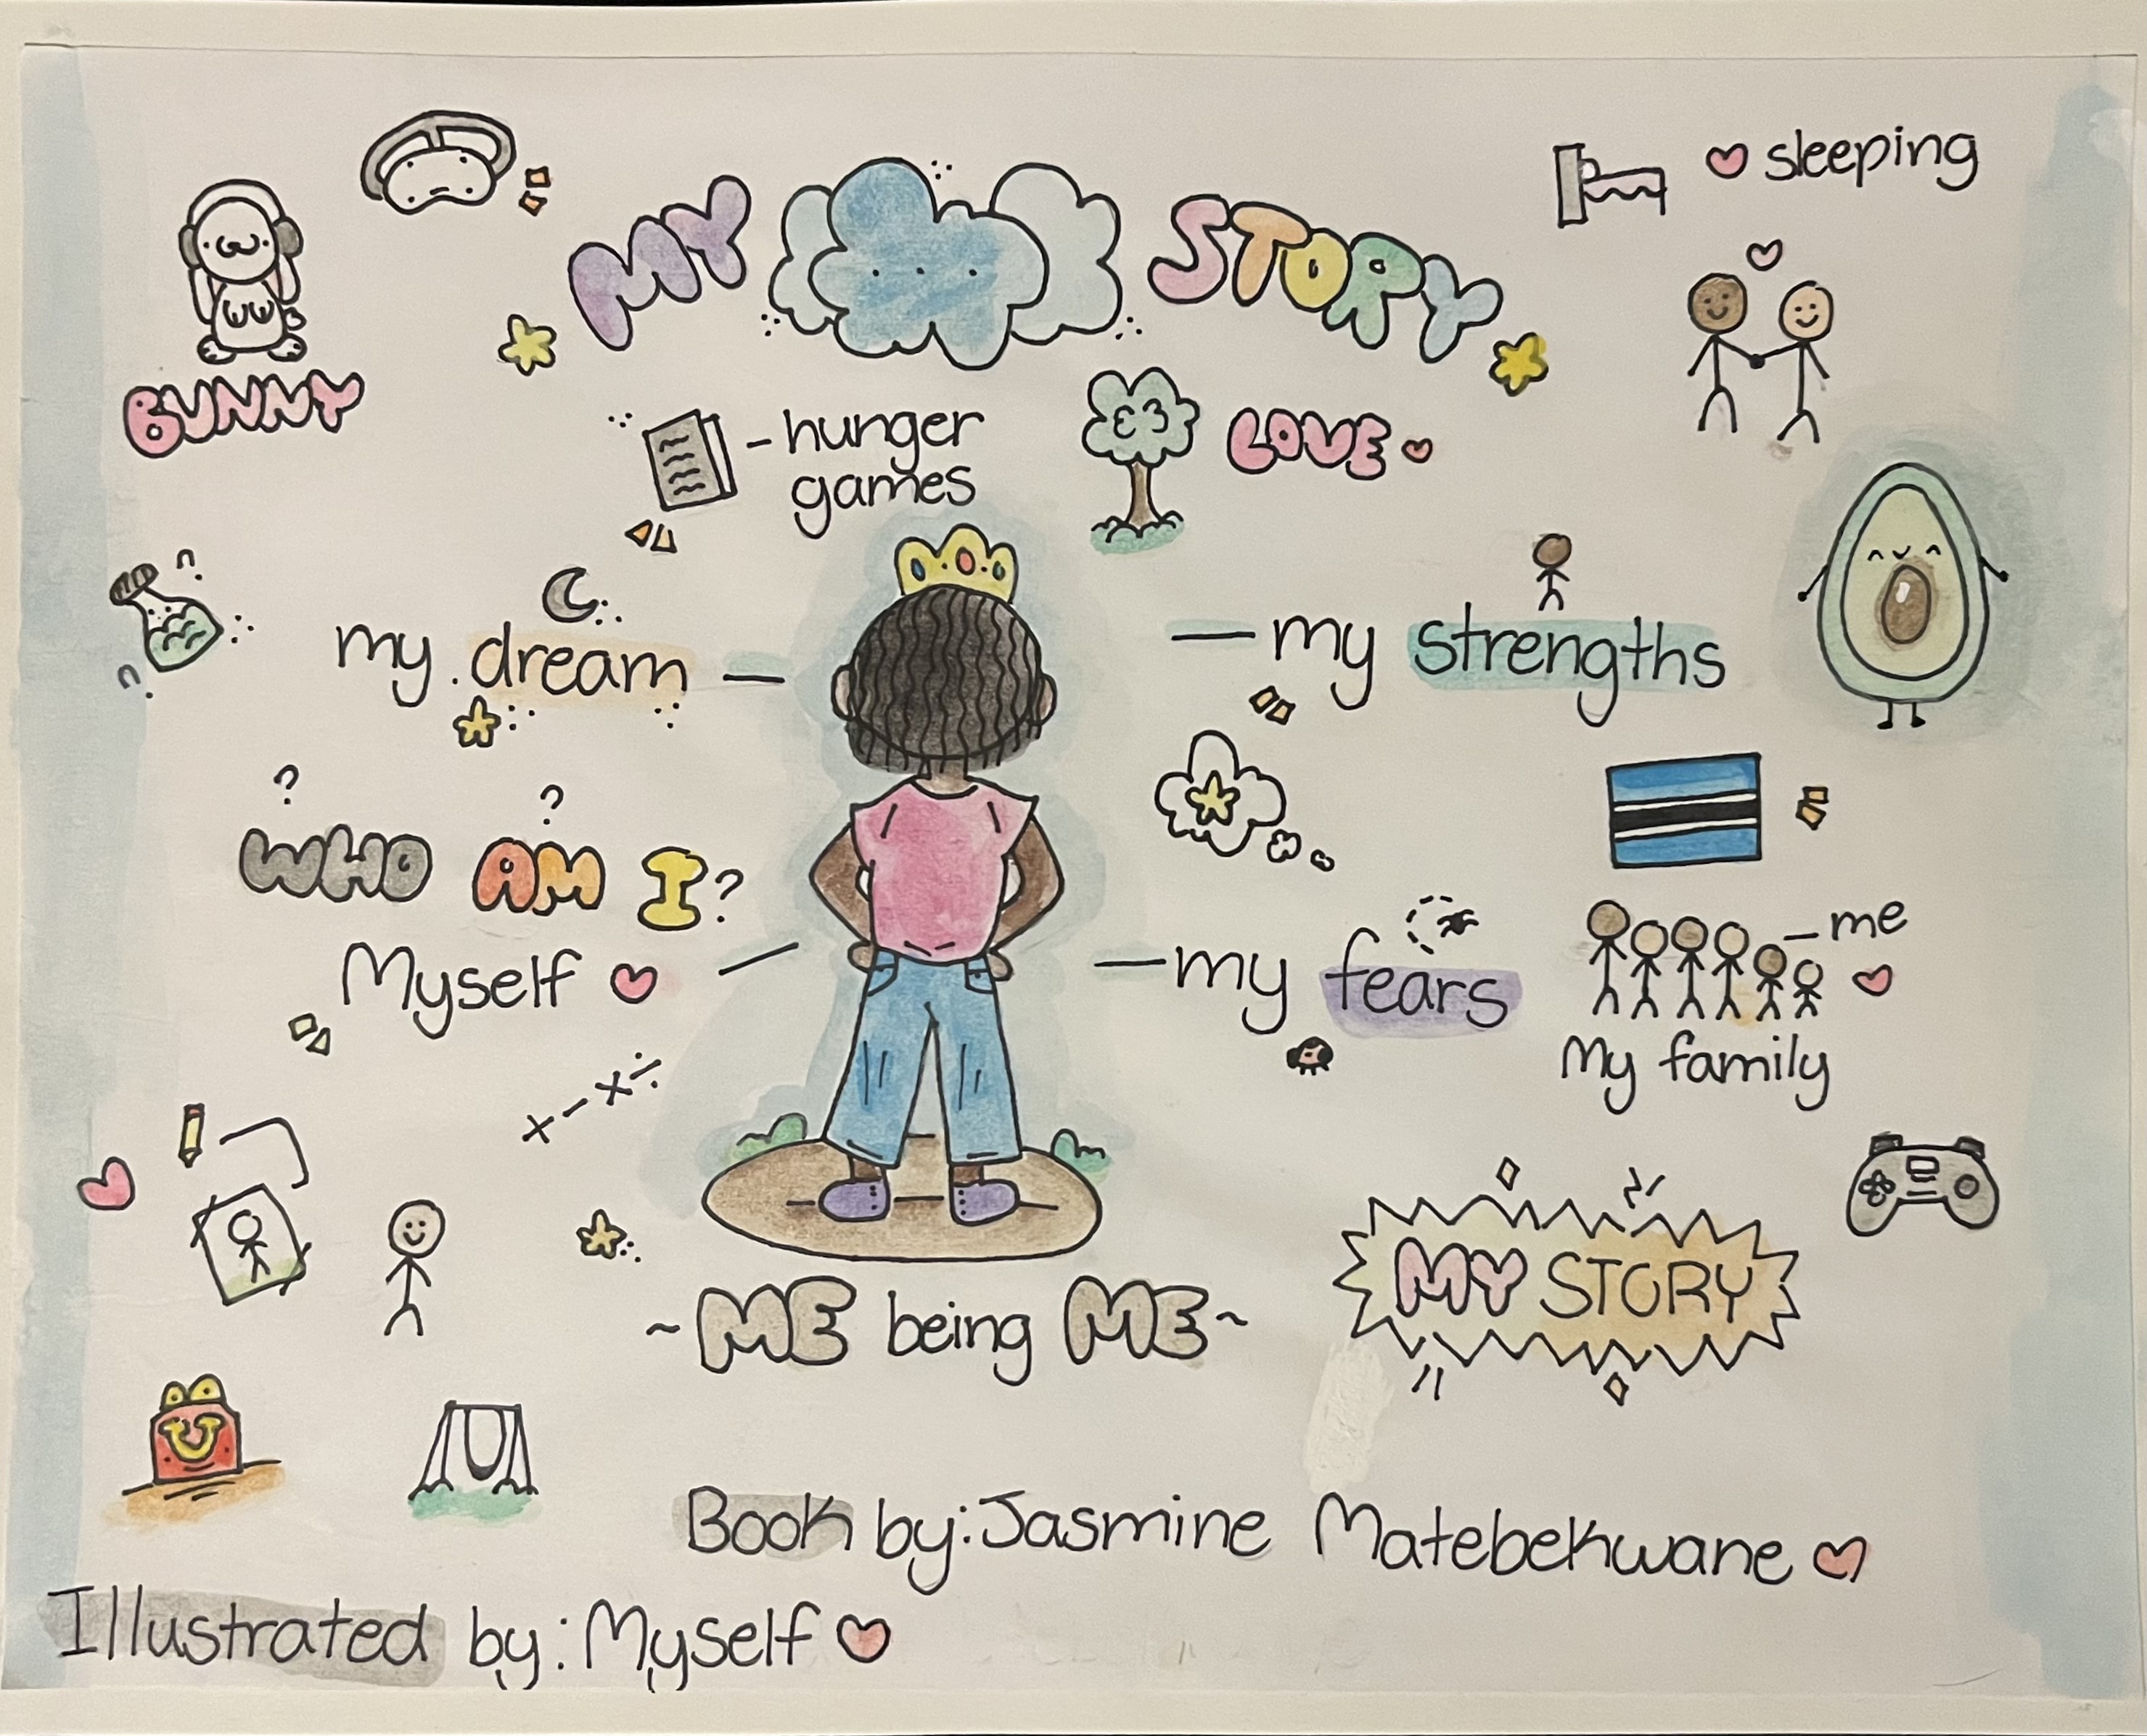 MY STORY
♥ sleeping
BUNNY
- hunger
games
LOVE ♥
my dream —
— my strengths
? ?
WHO AM I?
Myself ♥
— my fears
— me
My family
MY STORY
~ ME being ME ~
Book by: Jasmine Matebekwane ♥
Illustrated by: Myself ♥